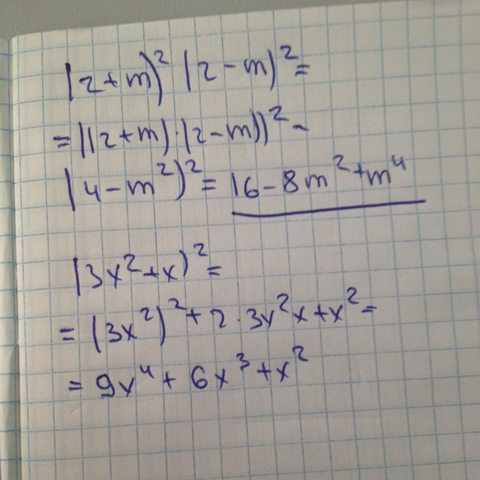 (2+m)² (2-m)² =
= ((2+m)·(2-m))² -
(4-m²)² = 16-8m²+m⁴
(3x²+x)² =
= (3x²)² + 2·3x²x+x² =
= 9x⁴ + 6x³ + x²